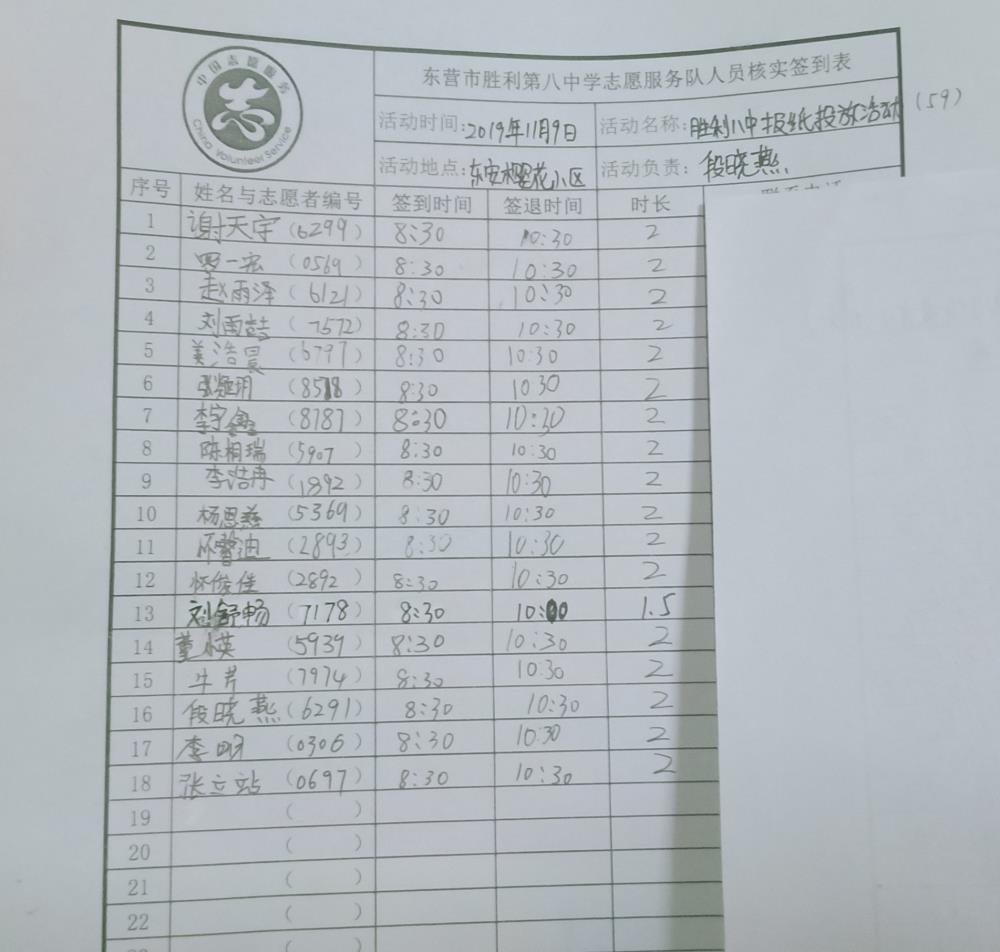 中国志愿服务
China Volunteer Service
东营市胜利第八中学志愿服务队人员核实签到表
活动时间:2019年11月9日 活动名称:胜利八中报纸投放活动(59)
活动地点:东安樱花小区 活动负责:段晓燕
序号 姓名与志愿者编号 签到时间 签退时间 时长
1 谢天宇(6299) 8:30 10:30 2
2 罗一宏(0569) 8:30 10:30 2
3 赵雨泽(6121) 8:30 10:30 2
4 刘雨喆(7572) 8:30 10:30 2
5 姜浩晨(6797) 8:30 10:30 2
6 张 (8518) 8:30 10:30 2
7 李宇鑫(8787) 8:30 10:30 2
8 陈相瑞(5907) 8:30 10:30 2
9 李浩冉(1892) 8:30 10:30 2
10 杨思慈(5369) 8:30 10:30 2
11 怀馨迪(2893) 8:30 10:30 2
12 怀俊佳(2892) 8:30 10:30 2
13 刘舒畅(7178) 8:30 10:00 1.5
14 董小英(5939) 8:30 10:30 2
15 牛芹(7974) 8:30 10:30 2
16 段晓燕(6291) 8:30 10:30 2
17 李明(0306) 8:30 10:30 2
18 张立站(0697) 8:30 10:30 2
19 ( )
20 ( )
21 ( )
22 ( )